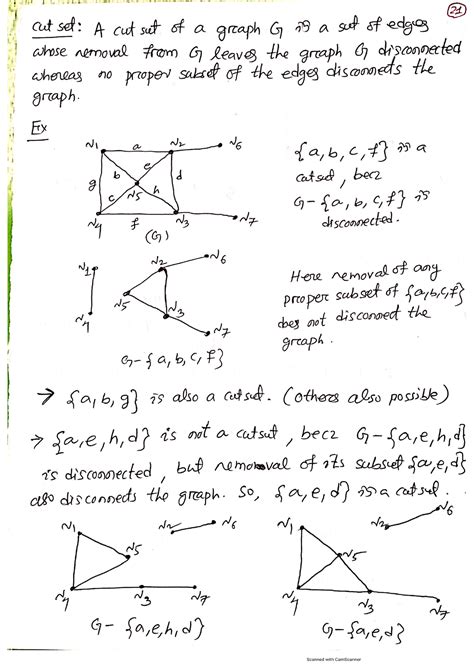 21
Cut set: A cut set of a graph G is a set of edges
whose removal from G leaves the graph G disconnected
whereas no proper subset of the edges disconnects the
graph.
Ex
v1 a v2 v6
b e
g v5 d
c h
v4 f v3 v7
(G)
{a, b, c, f} is a
cutset, becz
G-{a, b, c, f} is
disconnected.
v1 v2 v6
v5
v4 v3 v7
G-{a, b, c, f}
Here removal of any
proper subset of {a,b,c,f}
does not disconnect the
graph.
→ {a, b, g} is also a cutset. (others also possible)
→ {a, e, h, d} is not a cutset, becz G-{a, e, h, d}
is disconnected, but removal of its subset {a, e, d}
also disconnects the graph. So, {a, e, d} is a cutset.
v1 v2 v6
v5
v4 v3 v7
G- {a, e, h, d}
v1 v2 v6
v5
v4 v3 v7
G- {a, e, d}
Scanned with CamScanner